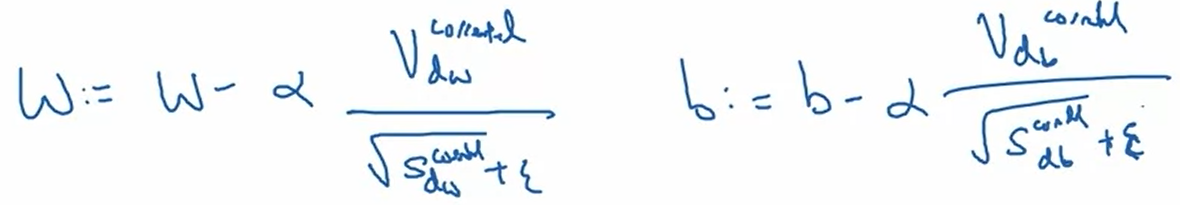 W := W - α V_{dw}^{corrected} / (√S_{dw}^{corrected} + ε)    b := b - α V_{db}^{corrected} / (√S_{db}^{corrected} + ε)